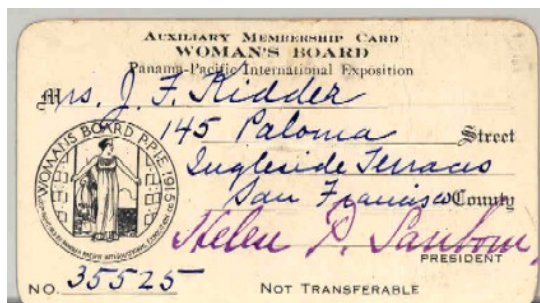 AUXILIARY MEMBERSHIP CARD
WOMAN'S BOARD
Panama-Pacific International Exposition
Mrs. J. F. Kidder
145 Paloma Street
Ingleside Terraces
San Francisco County
WOMAN'S BOARD P.P.I.E. 1915
Helen P. Sanborn,
PRESIDENT
NO. 35525 NOT TRANSFERABLE